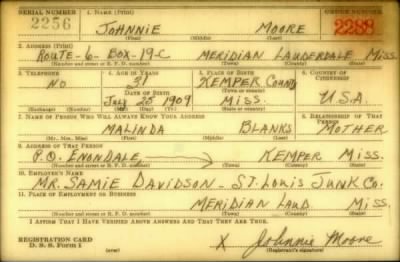 SERIAL NUMBER 1. NAME (Print) ORDER NUMBER
2256 JOHNNIE MOORE 2288
(First) (Middle) (Last)
2. ADDRESS (Print)
ROUTE-6-BOX-19-C MERIDIAN LAUDERDALE MISS.
(Number and street or R. F. D. number) (Town) (County) (State)
3. TELEPHONE 4. AGE IN YEARS 5. PLACE OF BIRTH 6. COUNTRY OF CITIZENSHIP
NO 31 KEMPER COUNTY
DATE OF BIRTH (Town or county)
JULY 25 1909 MISS. U.S.A.
(Exchange) (Number) (Mo.) (Day) (Yr.) (State or country)
7. NAME OF PERSON WHO WILL ALWAYS KNOW YOUR ADDRESS 8. RELATIONSHIP OF THAT PERSON
MALINDA BLANKS MOTHER
(Mr., Mrs., Miss) (First) (Middle) (Last)
9. ADDRESS OF THAT PERSON
P.O. ENONDALE KEMPER MISS.
(Number and street or R. F. D. number) (Town) (County) (State)
10. EMPLOYER'S NAME
MR. SAMIE DAVIDSON - ST. LOUIS JUNK CO.
11. PLACE OF EMPLOYMENT OR BUSINESS
MERIDIAN LAUD. MISS.
(Number and street or R. F. D. number) (Town) (County) (State)
I AFFIRM THAT I HAVE VERIFIED ABOVE ANSWERS AND THAT THEY ARE TRUE.
REGISTRATION CARD
D. S. S. Form 1 X Johnnie Moore
(Registrant's signature)